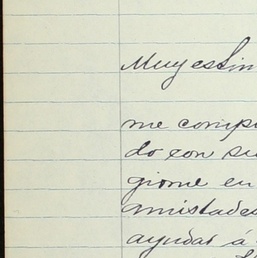 Muy estim
me comp
do con su
giome en
amistades
ayudar á